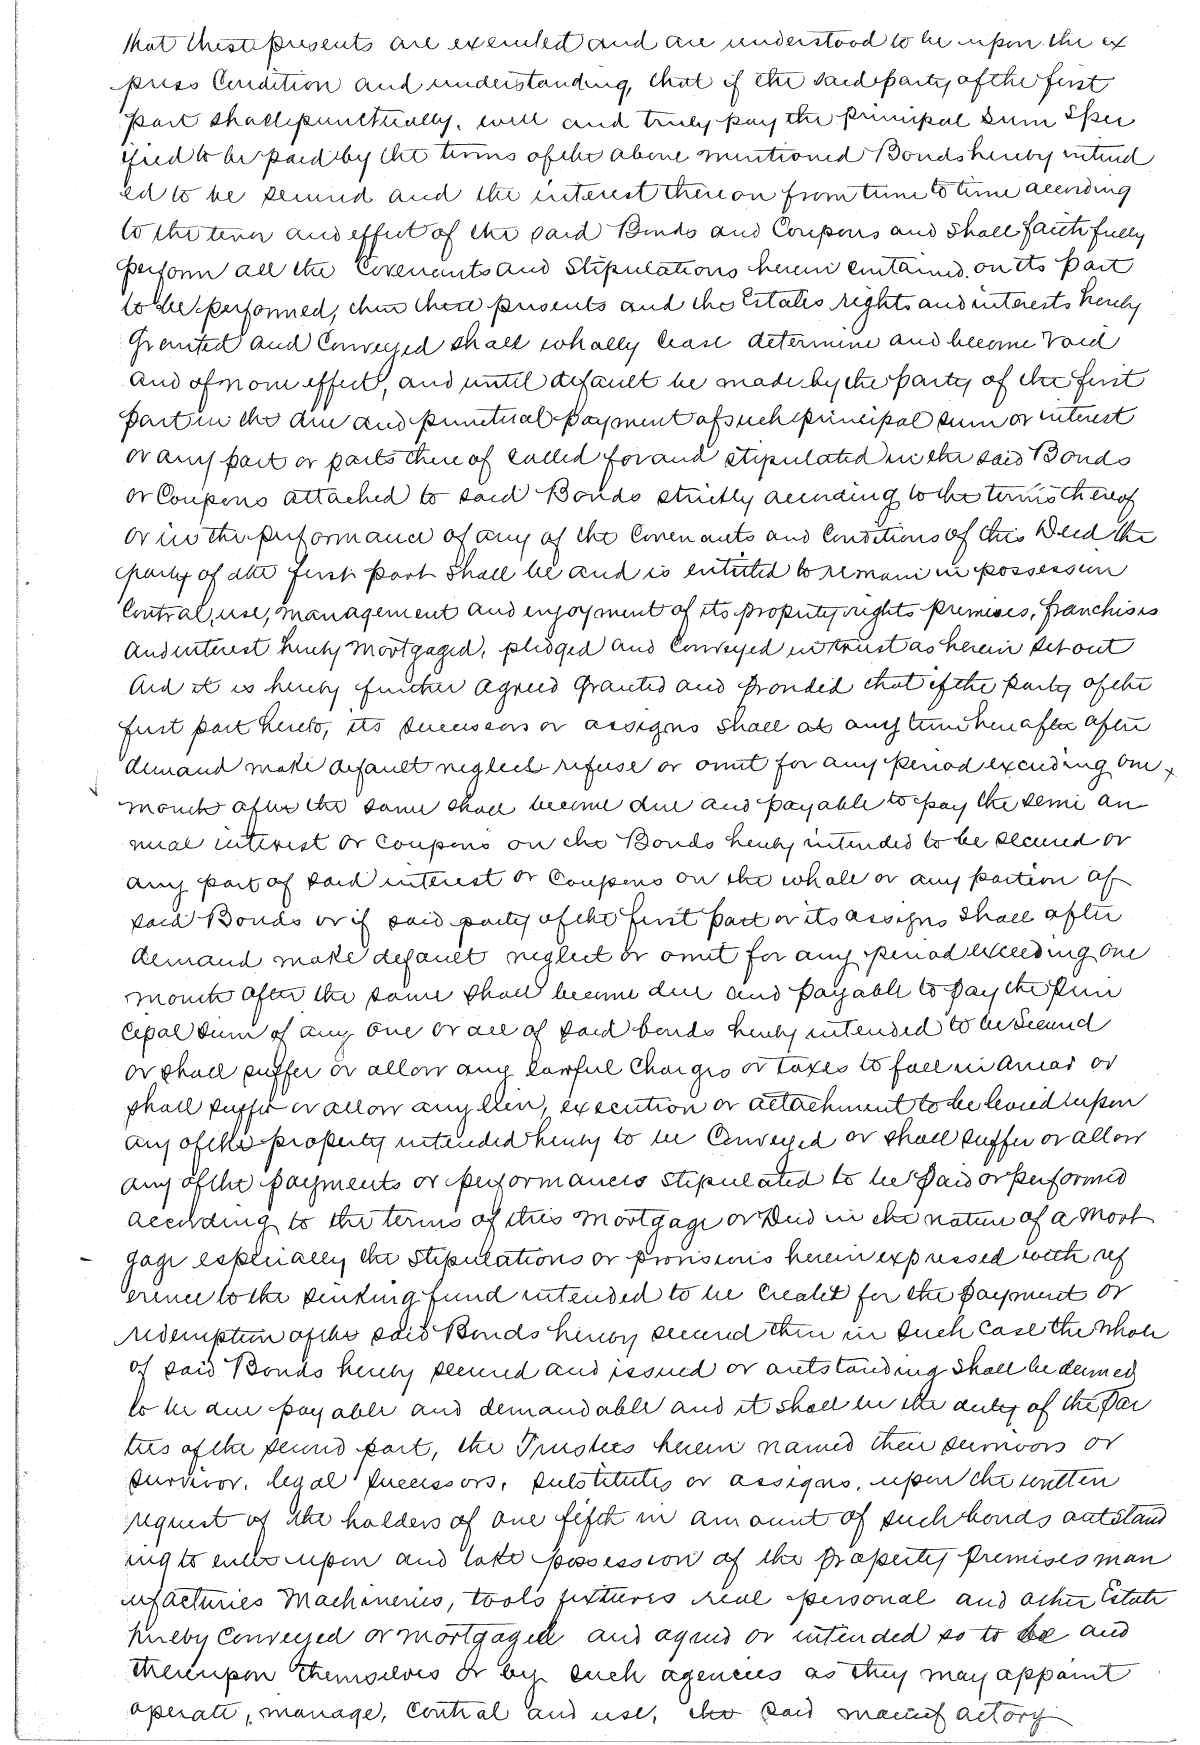 that these presents are executed and are understood to be upon the ex
press Condition and understanding, that if the said party of the first
part shall punctually, well and truly pay the principal Sum Spec
ified to be paid by the terms of the above mentioned Bonds hereby intend
ed to be secured and the interest thereon from time to time according
to the tenor and effect of the said Bonds and Coupons and shall faithfully
perform all the Covenants and Stipulations herein contained on its part
to be performed, then these presents and the Estates rights and interests hereby
Granted and Conveyed shall wholly cease determine and become void
and of none effect, and until default be made by the party of the first
part in the due and punctual payment of such principal sum or interest
or any part or parts thereof called for and stipulated in the said Bonds
or Coupons attached to said Bonds strictly according to the terms thereof
or in the performance of any of the Covenants and Conditions of this Deed the
party of the first part shall be and is entitled to remain in possession
Control, use, management and enjoyment of its property rights premises, franchises
and interest hereby mortgaged, pledged and conveyed in trust as herein set out
And it is hereby further agreed granted and provided that if the party of the
first part hereto, its successors or assigns shall at any time hereafter after
demand make default neglect refuse or omit for any period exceeding one
month after the same shall become due and payable to pay the semi an
nual interest or coupons on the Bonds hereby intended to be secured or
any part of said interest or Coupons on the whole or any portion of
said Bonds or if said party of the first part or its assigns shall after
demand make default neglect or omit for any period exceeding one
month after the same shall become due and payable to pay the prin
cipal sum of any one or all of said bonds hereby intended to be secured
or shall suffer or allow any lawful Charges or taxes to fall in arrear or
shall suffer or allow any lien, execution or attachment to be levied upon
any of the property intended hereby to be Conveyed or shall suffer or allow
any of the payments or performances stipulated to be paid or performed
according to the terms of this mortgage or Deed in the nature of a mort
gage especially the stipulations or provisions herein expressed with ref
erence to the sinking fund intended to be created for the payment or
redemption of the said Bonds hereby secured then in such case the whole
of said Bonds hereby secured and issued or outstanding shall be deemed
to be due payable and demandable and it shall be the duty of the Par
ties of the second part, the Trustees herein named their survivors or
survivor, legal successors, substitutes or assigns, upon the written
request of the holders of one fifth in amount of such bonds outstand
ing to enter upon and take possession of the property premises man
ufacturies Machineries, tools fixtures real personal and other Estate
hereby conveyed or mortgaged and agreed or intended so to be and
thereupon themselves or by such agencies as they may appoint
operate, manage, control and use, the said manufactory